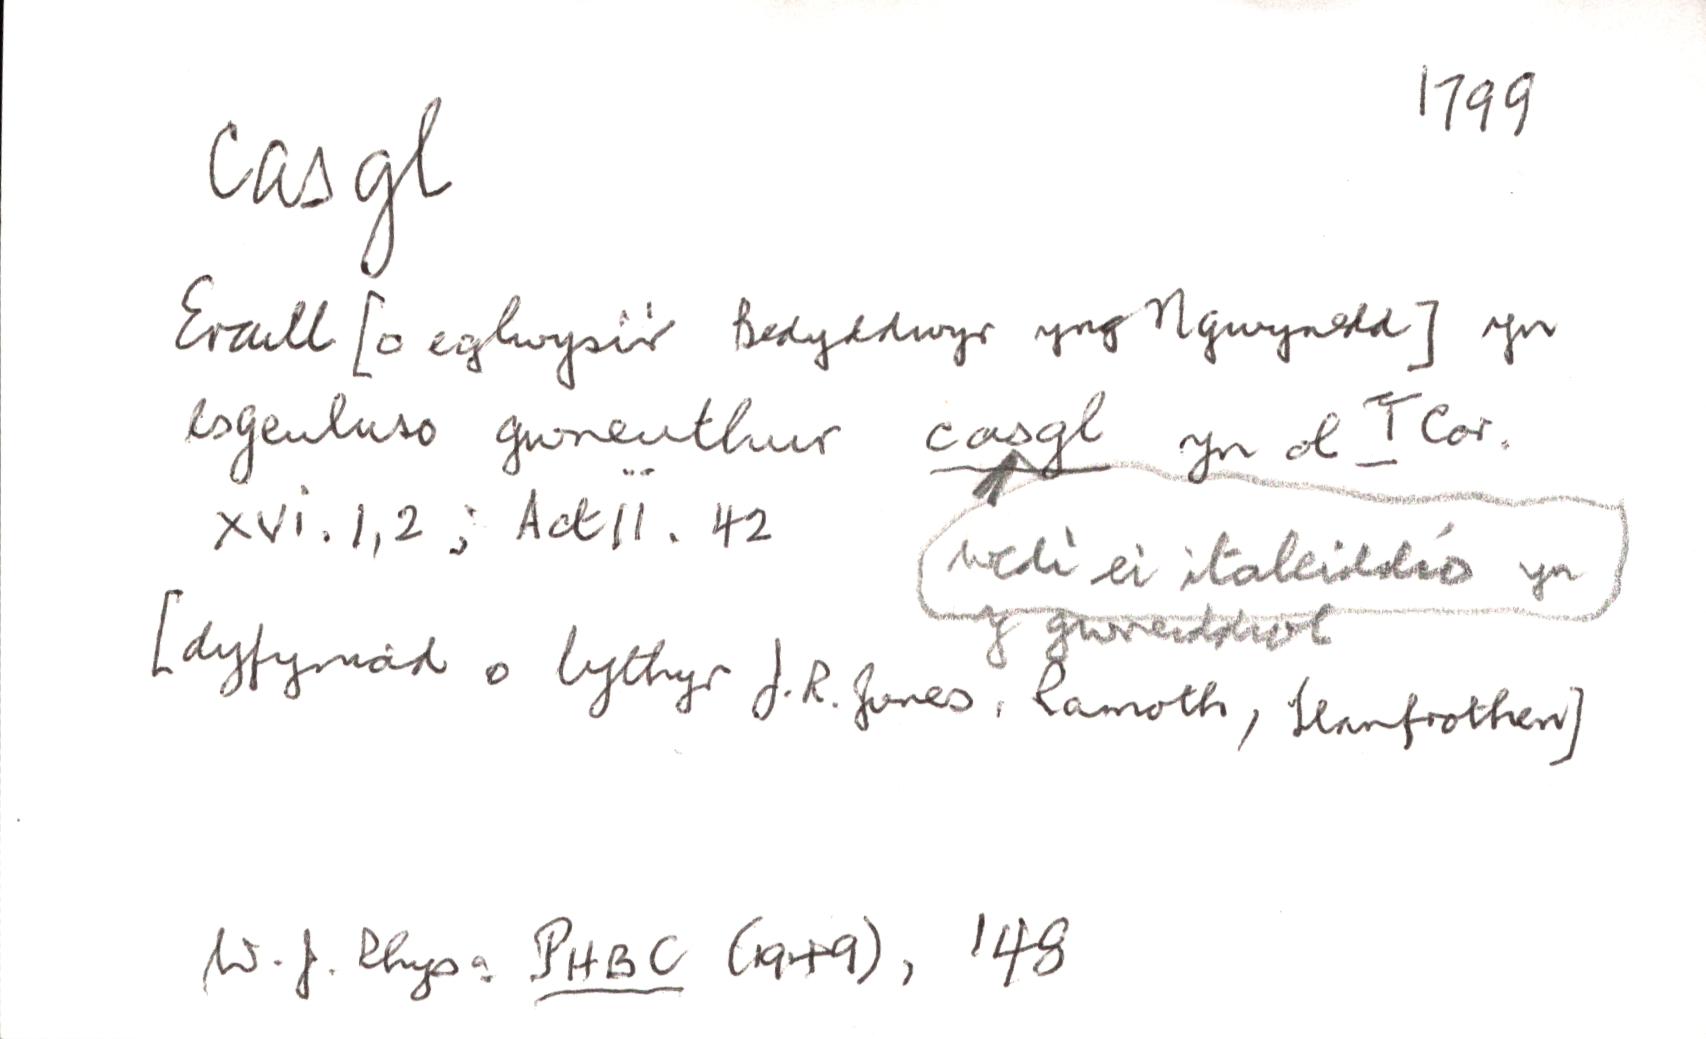 1799
casgl
Eraill [o eglwysi'r Bedyddwyr yng Ngwynedd] yn
esgeuluso gwneuthur casgl yn ol I Cor.
xvi. 1,2; Act ii. 42
wedi ei italeiddio yn
y gwreiddiol
[dyfyniad o lythyr J.R. Jones, Ramoth, Llanfrothen]
W.J. Rhys: PHBC (1949), 148